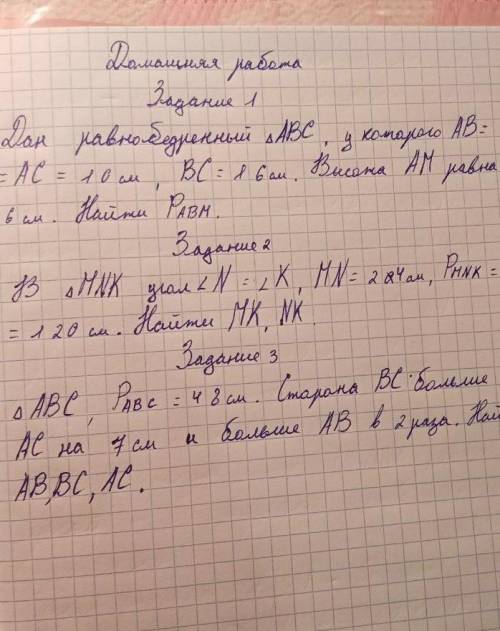 Домашняя работа
Задание 1
Дан равнобедренный △ABC, у которого AB=
= AC = 10 см, BC = 16 см. Высота AM равна
6 см. Найти PABM.
Задание 2
В △MNK угол ∠N = ∠K, MN = 24 см, PMNK =
= 120 см. Найти MK, NK.
Задание 3
△ABC, PABC = 48 см. Сторона BC больше
AC на 7 см и больше AB в 2 раза. Най
AB, BC, AC.